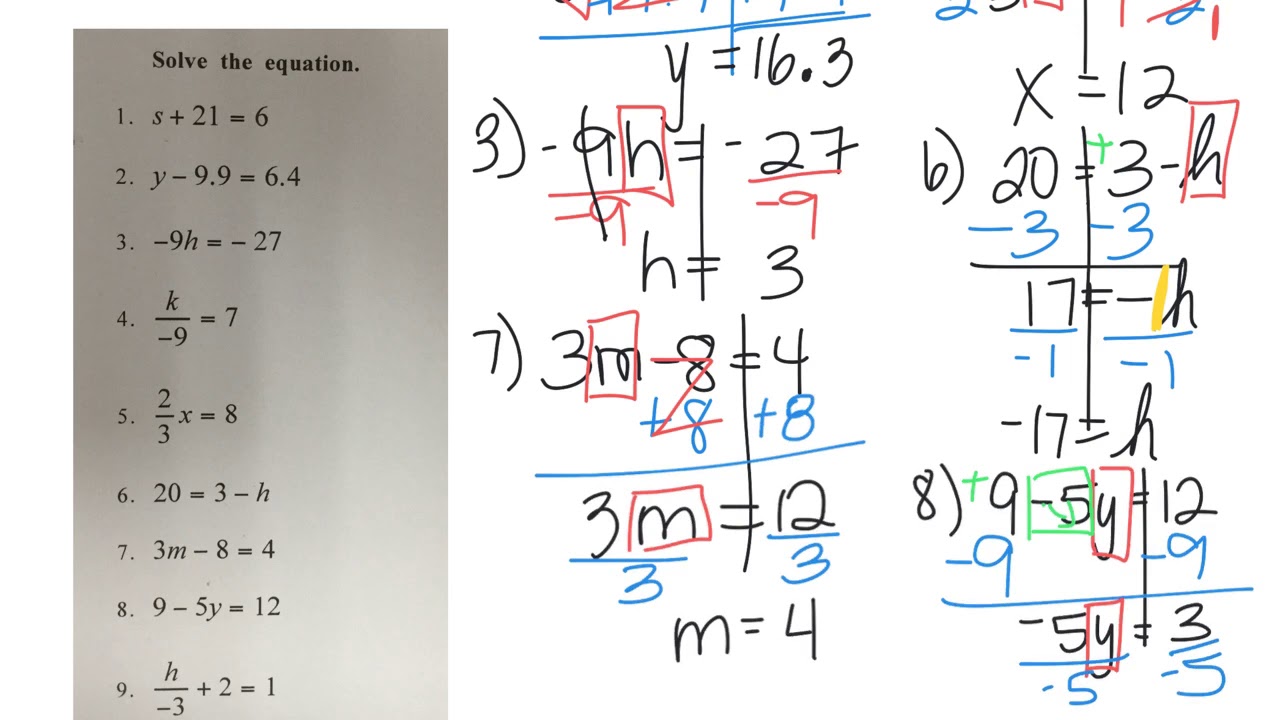 Solve the equation.
1. s + 21 = 6
2. y – 9.9 = 6.4
3. –9h = – 27
4. k/–9 = 7
5. 2/3 x = 8
6. 20 = 3 – h
7. 3m – 8 = 4
8. 9 – 5y = 12
9. h/–3 + 2 = 1
y = 16.3
3) -9h = -27
-9 -9
h = 3
7) 3m - 8 = 4
+8 +8
3m = 12
3 3
m = 4
x = 12
6) 20 = +3 - h
-3 -3
17 = -1h
-1 -1
-17 = h
8) +9 - 5y = 12
-9 -9
-5y = 3
-5 -5